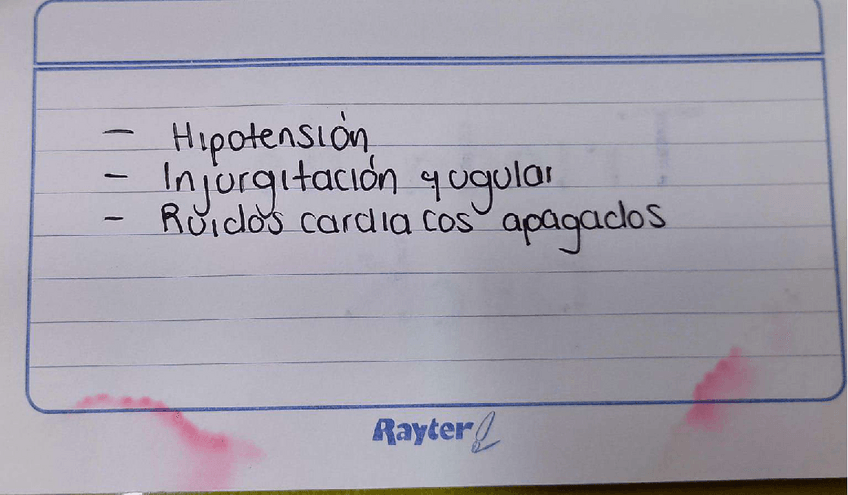 - Hipotensión
- Injurgitación yugular
- Ruidos cardiacos apagados
Rayter